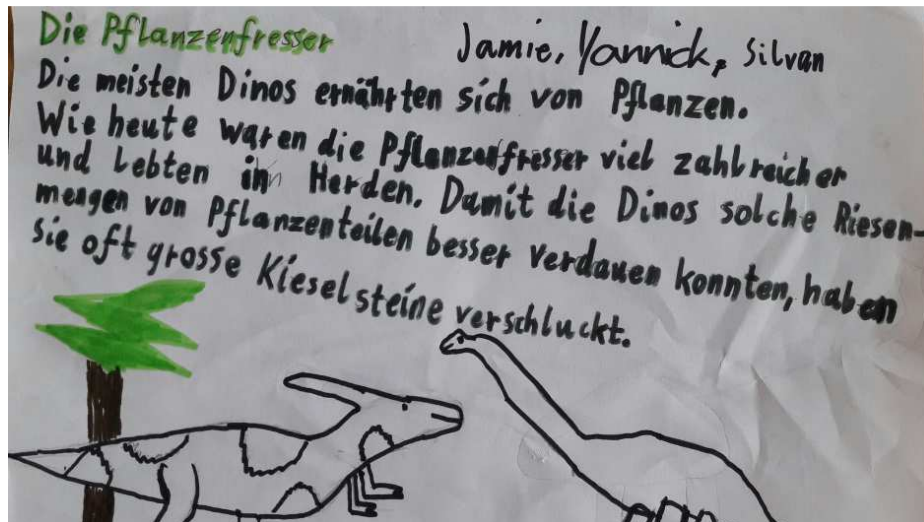 Die Pflanzenfresser
Jamie, Yannick, Silvan
Die meisten Dinos ernährten sich von Pflanzen.
Wie heute waren die Pflanzenfresser viel zahlreicher
und Lebten in Herden. Damit die Dinos solche Riesen-
mengen von Pflanzenteilen besser verdauen konnten, haben
sie oft grosse Kieselsteine verschluckt.